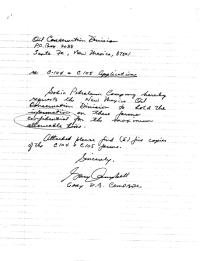 Oil Conservation Division
P.O. Box 2088
Santa Fe, New Mexico, 87501
re: C-104 & C105 Applications
Sohio Petroleum Company hereby
requests the New Mexico Oil
Conservation Division to hold the
information on these forms
confidential for the maximum
allowable time.
Attached please find (5) five copies
of the C104 & C105 forms.
Sincerely,
Gary Campbell